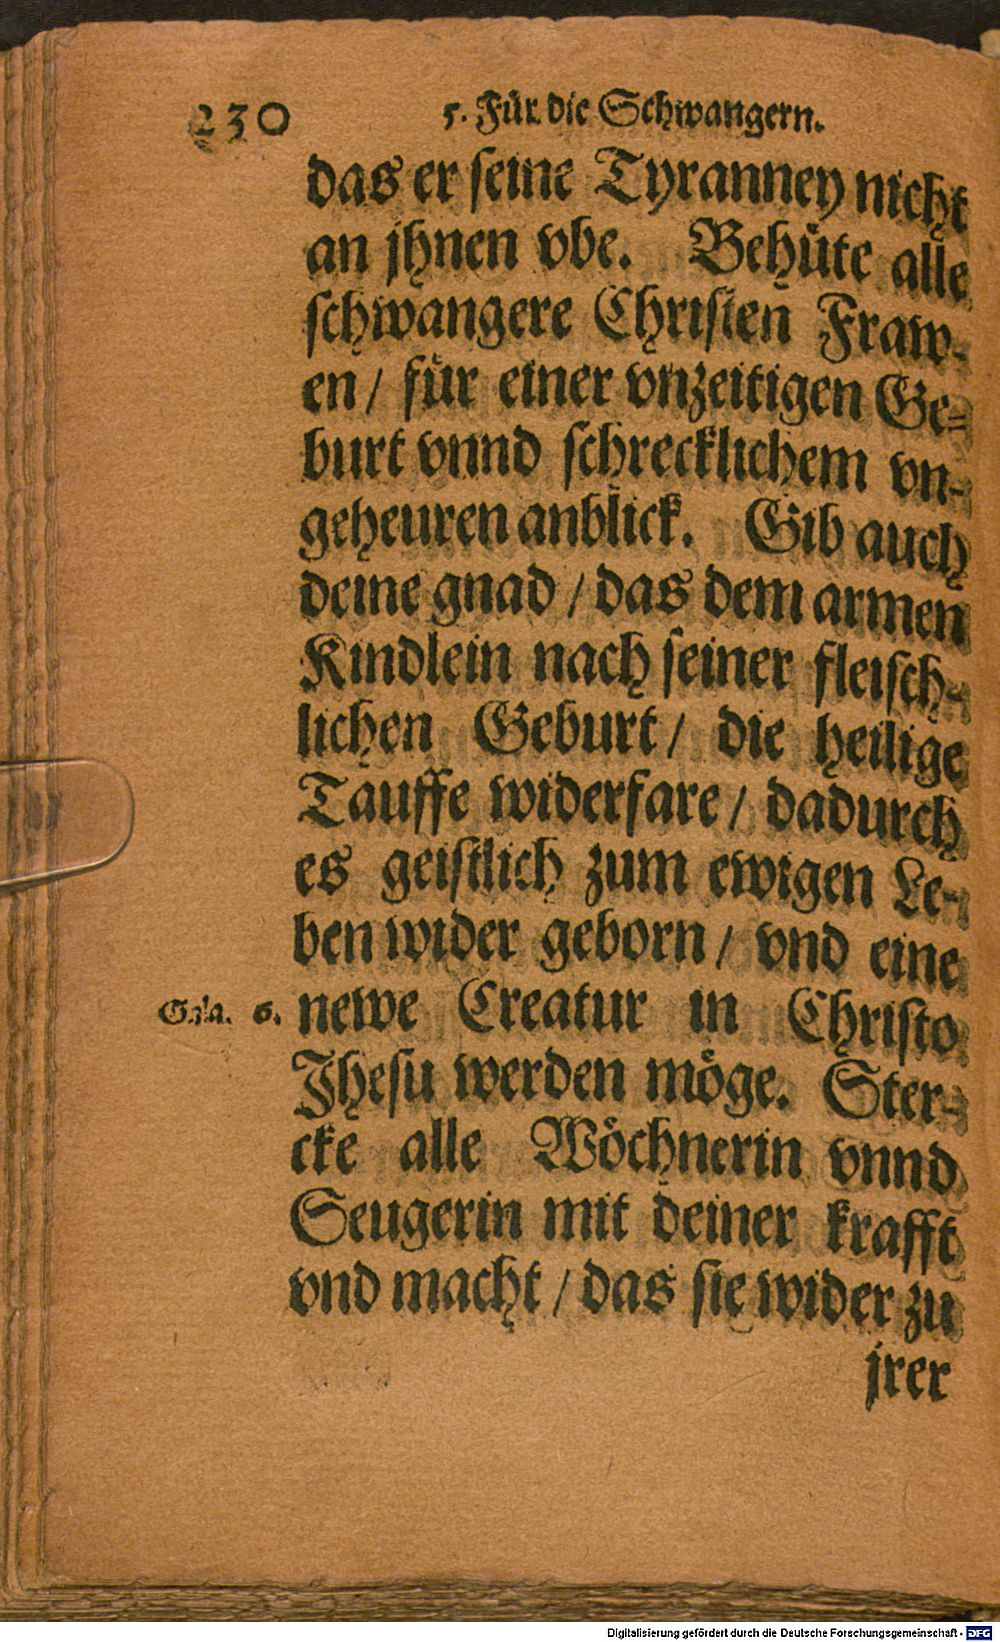 230 5. Für die Schwangern.
das er seine Tyranney nicht
an jhnen vbe. Behüte alle
schwangere Christen Fraw-
en / für einer vnzeitigen Ge-
burt vnnd schrecklichem vn-
geheuren anblick. Gib auch
deine gnad / das dem armen
Kindlein nach seiner fleisch-
lichen Geburt / die heilige
Tauffe widerfare / dadurch
es geistlich zum ewigen Le-
ben wider geborn / vnd eine
Gala. 6. newe Creatur in Christo
Jhesu werden möge. Ster-
cke alle Wöchnerin vnnd
Seugerin mit deiner krafft
vnd macht / das sie wider zu
jrer
Digitalisierung gefördert durch die Deutsche Forschungsgemeinschaft - DFG